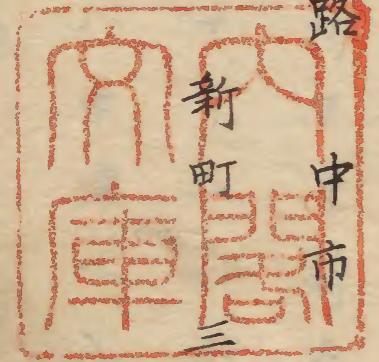 路中市
新町三
内閣
文庫